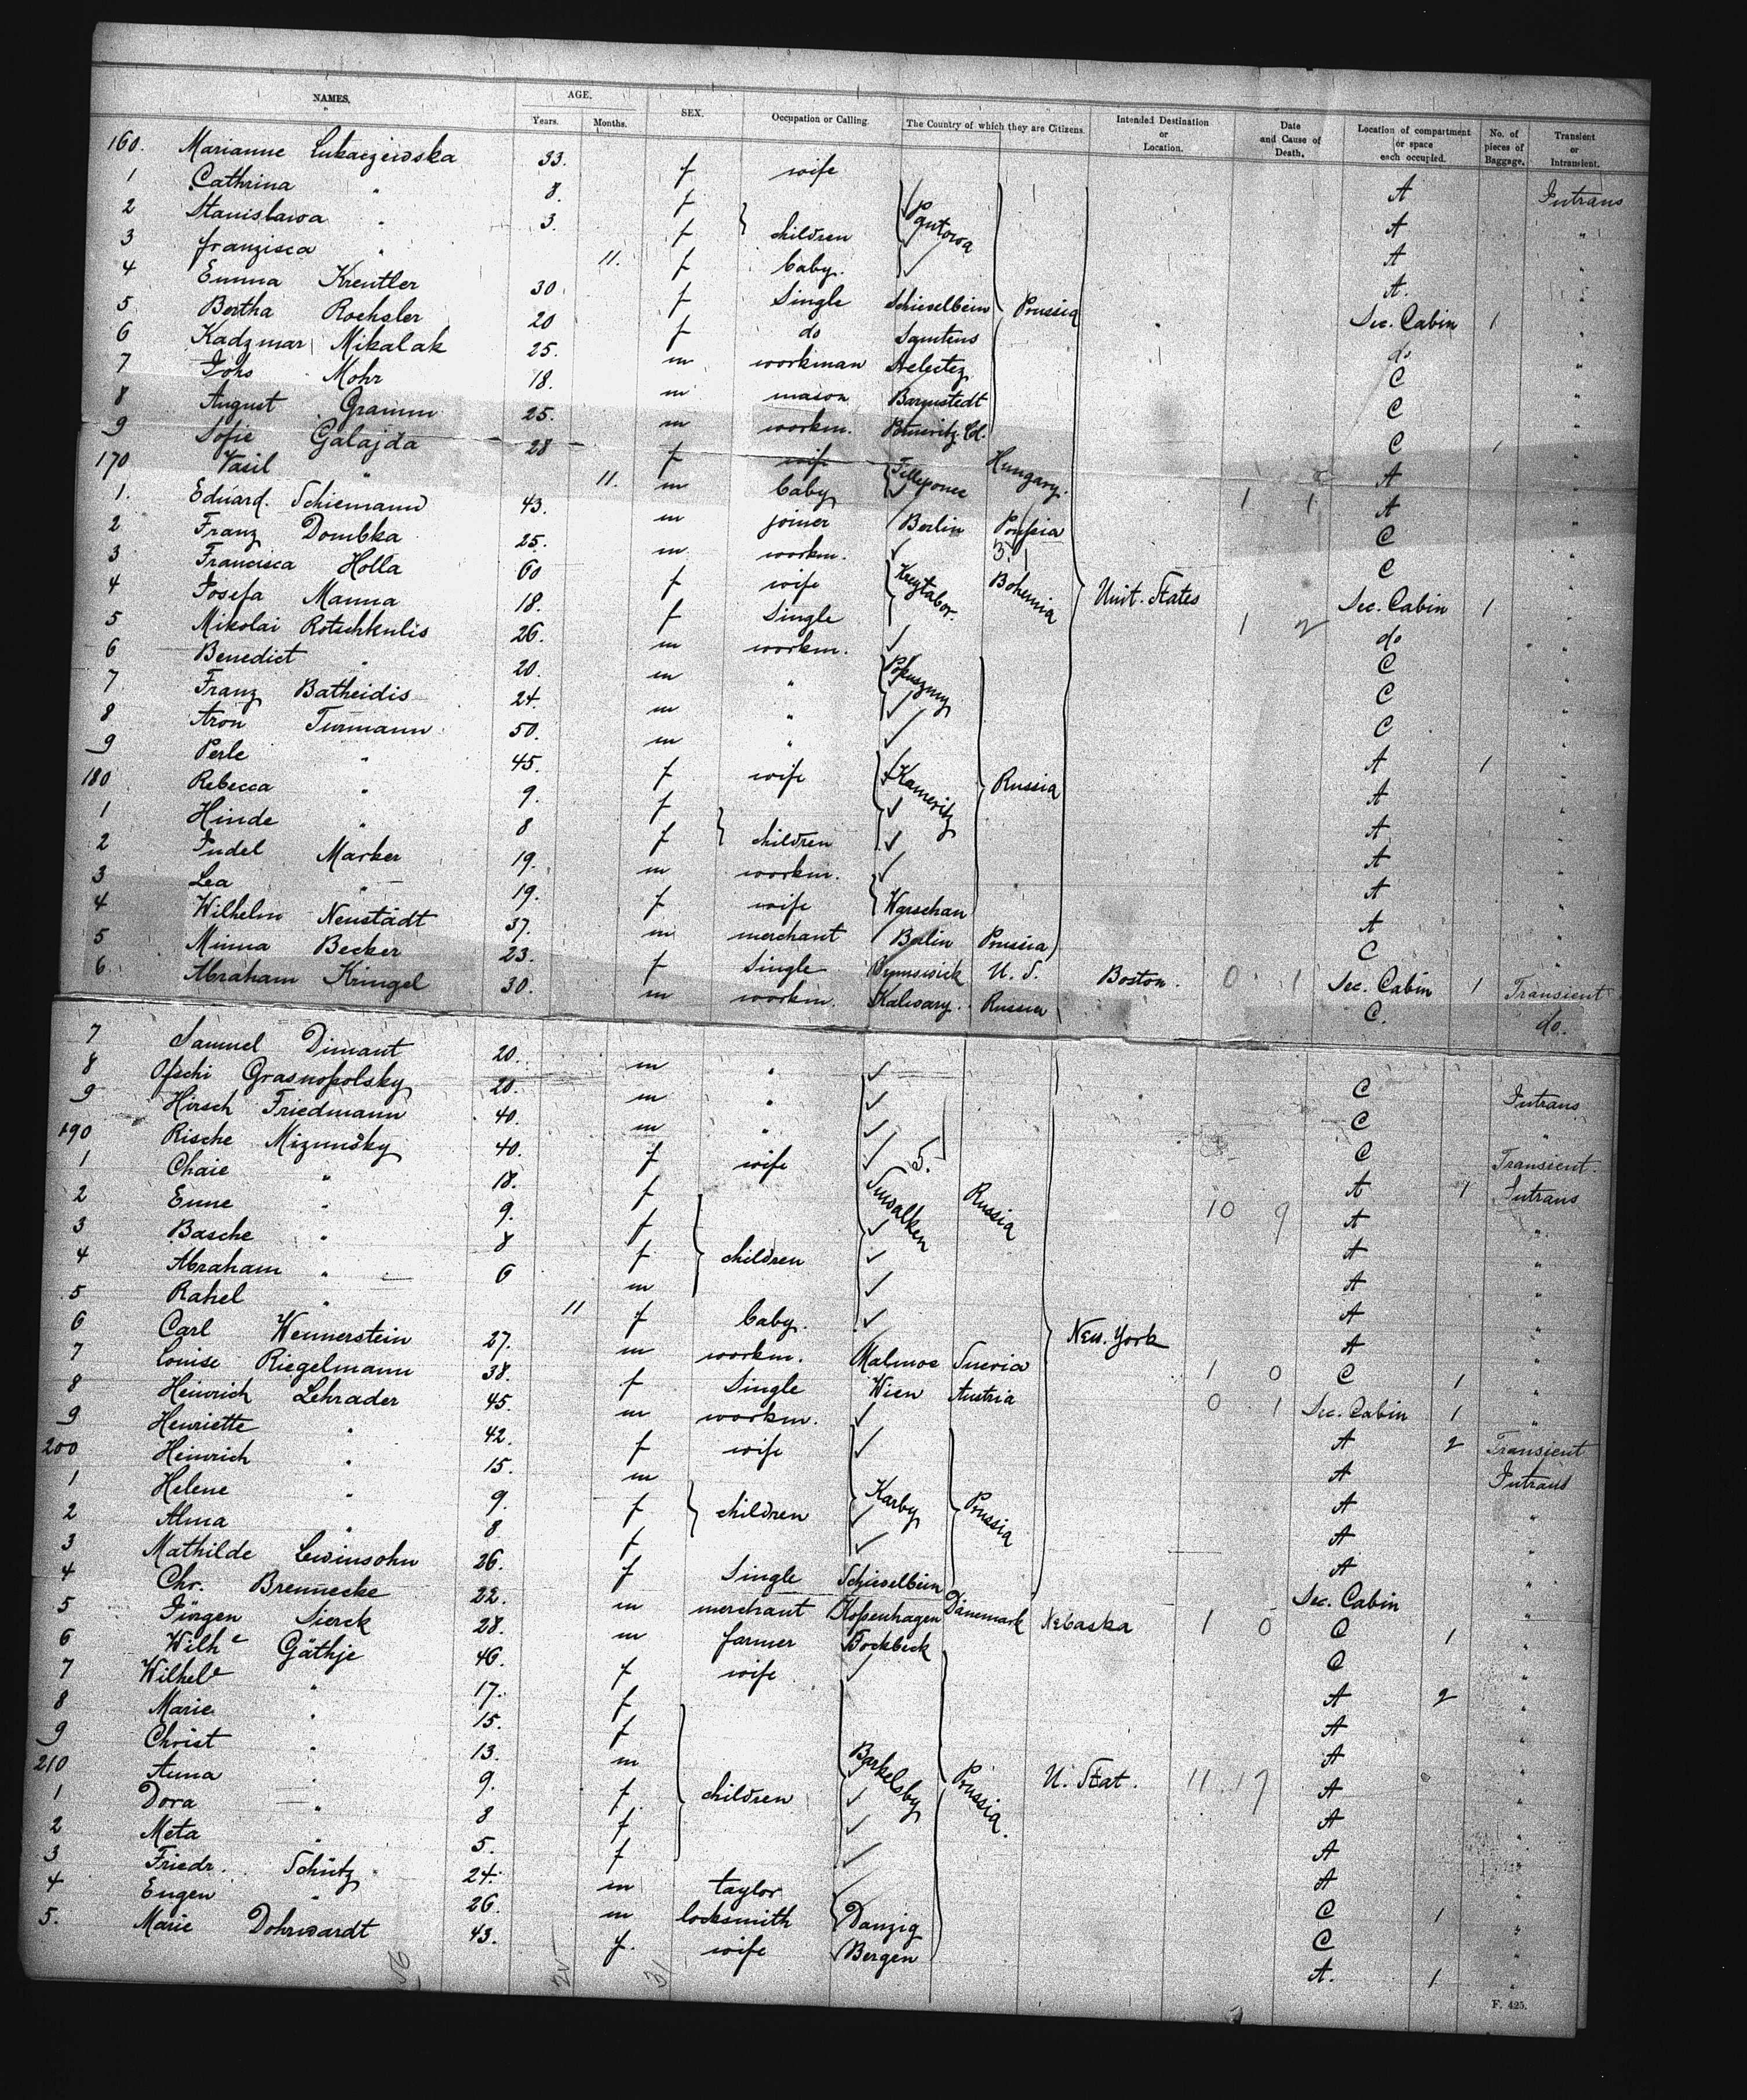 NAMES. AGE. Years. Months. SEX. Occupation or Calling. The Country of which they are Citizens. Intended Destination or Location. Date and Cause of Death. Location of compartment or space each occupied. No. of pieces of Baggage. Transient or Intransient.
160. Marianne Lukaczewska 33. f wife A Intrans
1 Cathrina " 8. f A "
2 Stanislawa " 3. f children Gutowa A "
3 Franzisca " 11. f baby. A. "
4 Emma Kreutler 30 f Single Schievelbein Prussia Sec. Cabin 1 "
5 Bertha Roehsler 20 f do Samtens do "
6 Kadzmar Mikalak 25. m workman C "
7 Johs Mohr 18. m mason Barmstedt C "
8 August Gramm 25. m workm. C 1 "
9 Sofie Galajda 28 f wife Hungary. A "
170 Vasil " 11. m baby 1 1 A "
1. Eduard Schiemann 43. m joiner Berlin Prussia C "
2 Franz Dombka 25. m workm. C "
3 Francisca Holla 60 f wife Bohemia Unit. States Sec. Cabin 1 "
4 Josefa Manna 18. f Single 1 2 do "
5 Mikolai Rotschkulis 26. m workm. C "
6 Benedict " 20. m " C "
7 Franz Batheidis 24. m " C "
8 Aron Turmann 50. m " A 1 "
9 Perle " 45. f wife Kameritz Russia A "
180 Rebecca " 9. f A "
1 Hinde " 8 f children A "
2 Judel Marker 19. m workm. A "
3 Lea " 19. f wife Warschau A "
4 Wilhelm Neustadt 37. m merchant Berlin Prussia C "
5 Minna Becker 23. f Single Brunswick U. S. Boston. 0 1 Sec. Cabin 1 Transient
6 Abraham Kringel 30. m workm. Kalwary. Russia C. do.
7 Samuel Dimant 20. m " C Intrans
8 Ofschi Grasnopolsky 20. m " C "
9 Hirsch Friedmann 40. m " C Transient.
190 Rische Mizunsky 40. f wife 5. A 1 Intrans
1 Chaie " 18. f Suwalken Russia 10 9 A "
2 Enne " 9. f A "
3 Basche " 8 f children A "
4 Abraham " 6 m A "
5 Rahel " 11 f baby. A "
6 Carl Wennerstein 27. m workm. Malmoe Suevia New. York 1 0 C 1 "
7 Louise Riegelmann 38. f Single Wien Austria 0 1 Sec. Cabin 1 "
8 Heinrich Lehrader 45. m workm. A 2 Transient
9 Henriette " 42. f wife A Intrans
200 Heinrich " 15. m A "
1 Helene " 9. f children Karby Prussia A "
2 Alma " 8 f A "
3 Mathilde Lewinsohn 26. f Single Schievelbein Sec. Cabin "
4 Chr. Brennecke 22. m merchant Kopenhagen Dänemark Nebaska 1 0 C 1 "
5 Jürgen Sierck 28. m farmer C "
6 Wilhe Gäthje 46. f wife A 2 "
7 Wilhele " 17. f A "
8 Marie " 15. f A "
9 Christ " 13. m A "
210 Anna " 9. f children Barkelsby Prussia. U. Stat. 11 17 A "
1 Dora " 8 f A "
2 Meta " 5. f A "
3 Friedr. Schütz 24. m taylor C 1 "
4 Eugen " 26. m locksmith Danzig C "
5. Marie Dohrwardt 43. f. wife Bergen A. 1 "
F. 425.